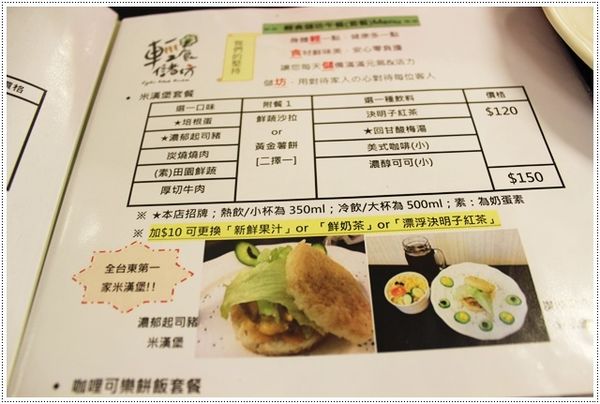 輕食儲坊午餐(套餐)Menu
身體輕一點‧健康多一點
我們的堅持
食材鮮味美‧安心零負擔
讓您每天儲備滿滿元氣&活力
儲坊‧用對待家人の心對待每位客人
輕食儲坊
價格
• 米漢堡套餐
選一口味 附餐1 選一種飲料 價格
★培根蛋 鮮蔬沙拉 決明子紅茶 $120
★濃郁起司豬 or ★回甘酸梅湯
炭燒燒肉 黃金薯餅 美式咖啡(小)
(素)田園鮮蔬 [二擇一] 濃醇可可(小)
厚切牛肉 $150
※ ★本店招牌;熱飲/小杯為 350ml;冷飲/大杯為 500ml;素:為奶蛋素
※ 加$10 可更換「新鮮果汁」or 「鮮奶茶」or「漂浮決明子紅茶」
全台東第一
家米漢堡!!
濃郁起司豬
米漢堡
• 咖哩可樂餅飯套餐